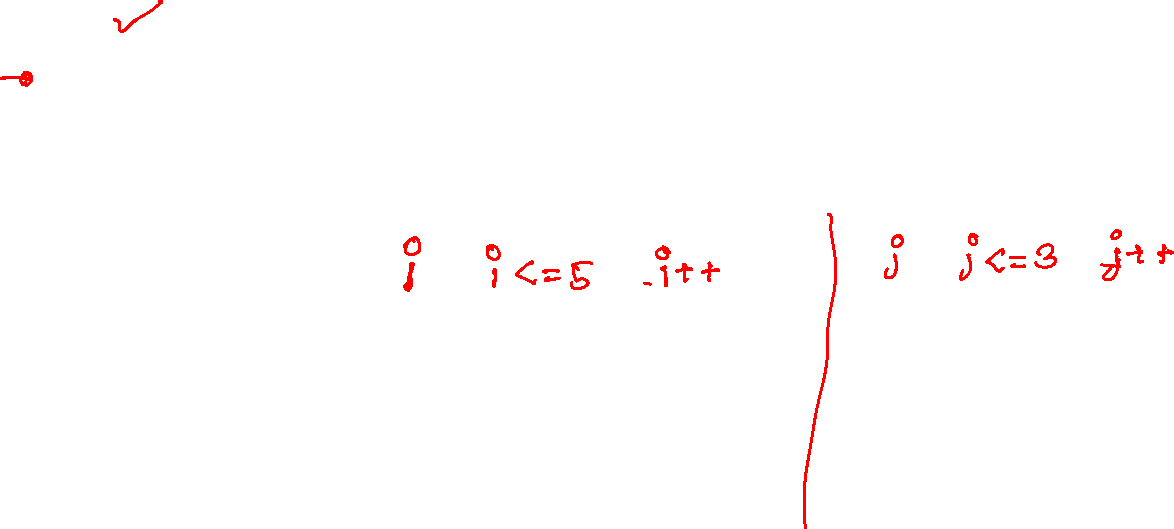 i i<=5 i++ j j<=3 j++